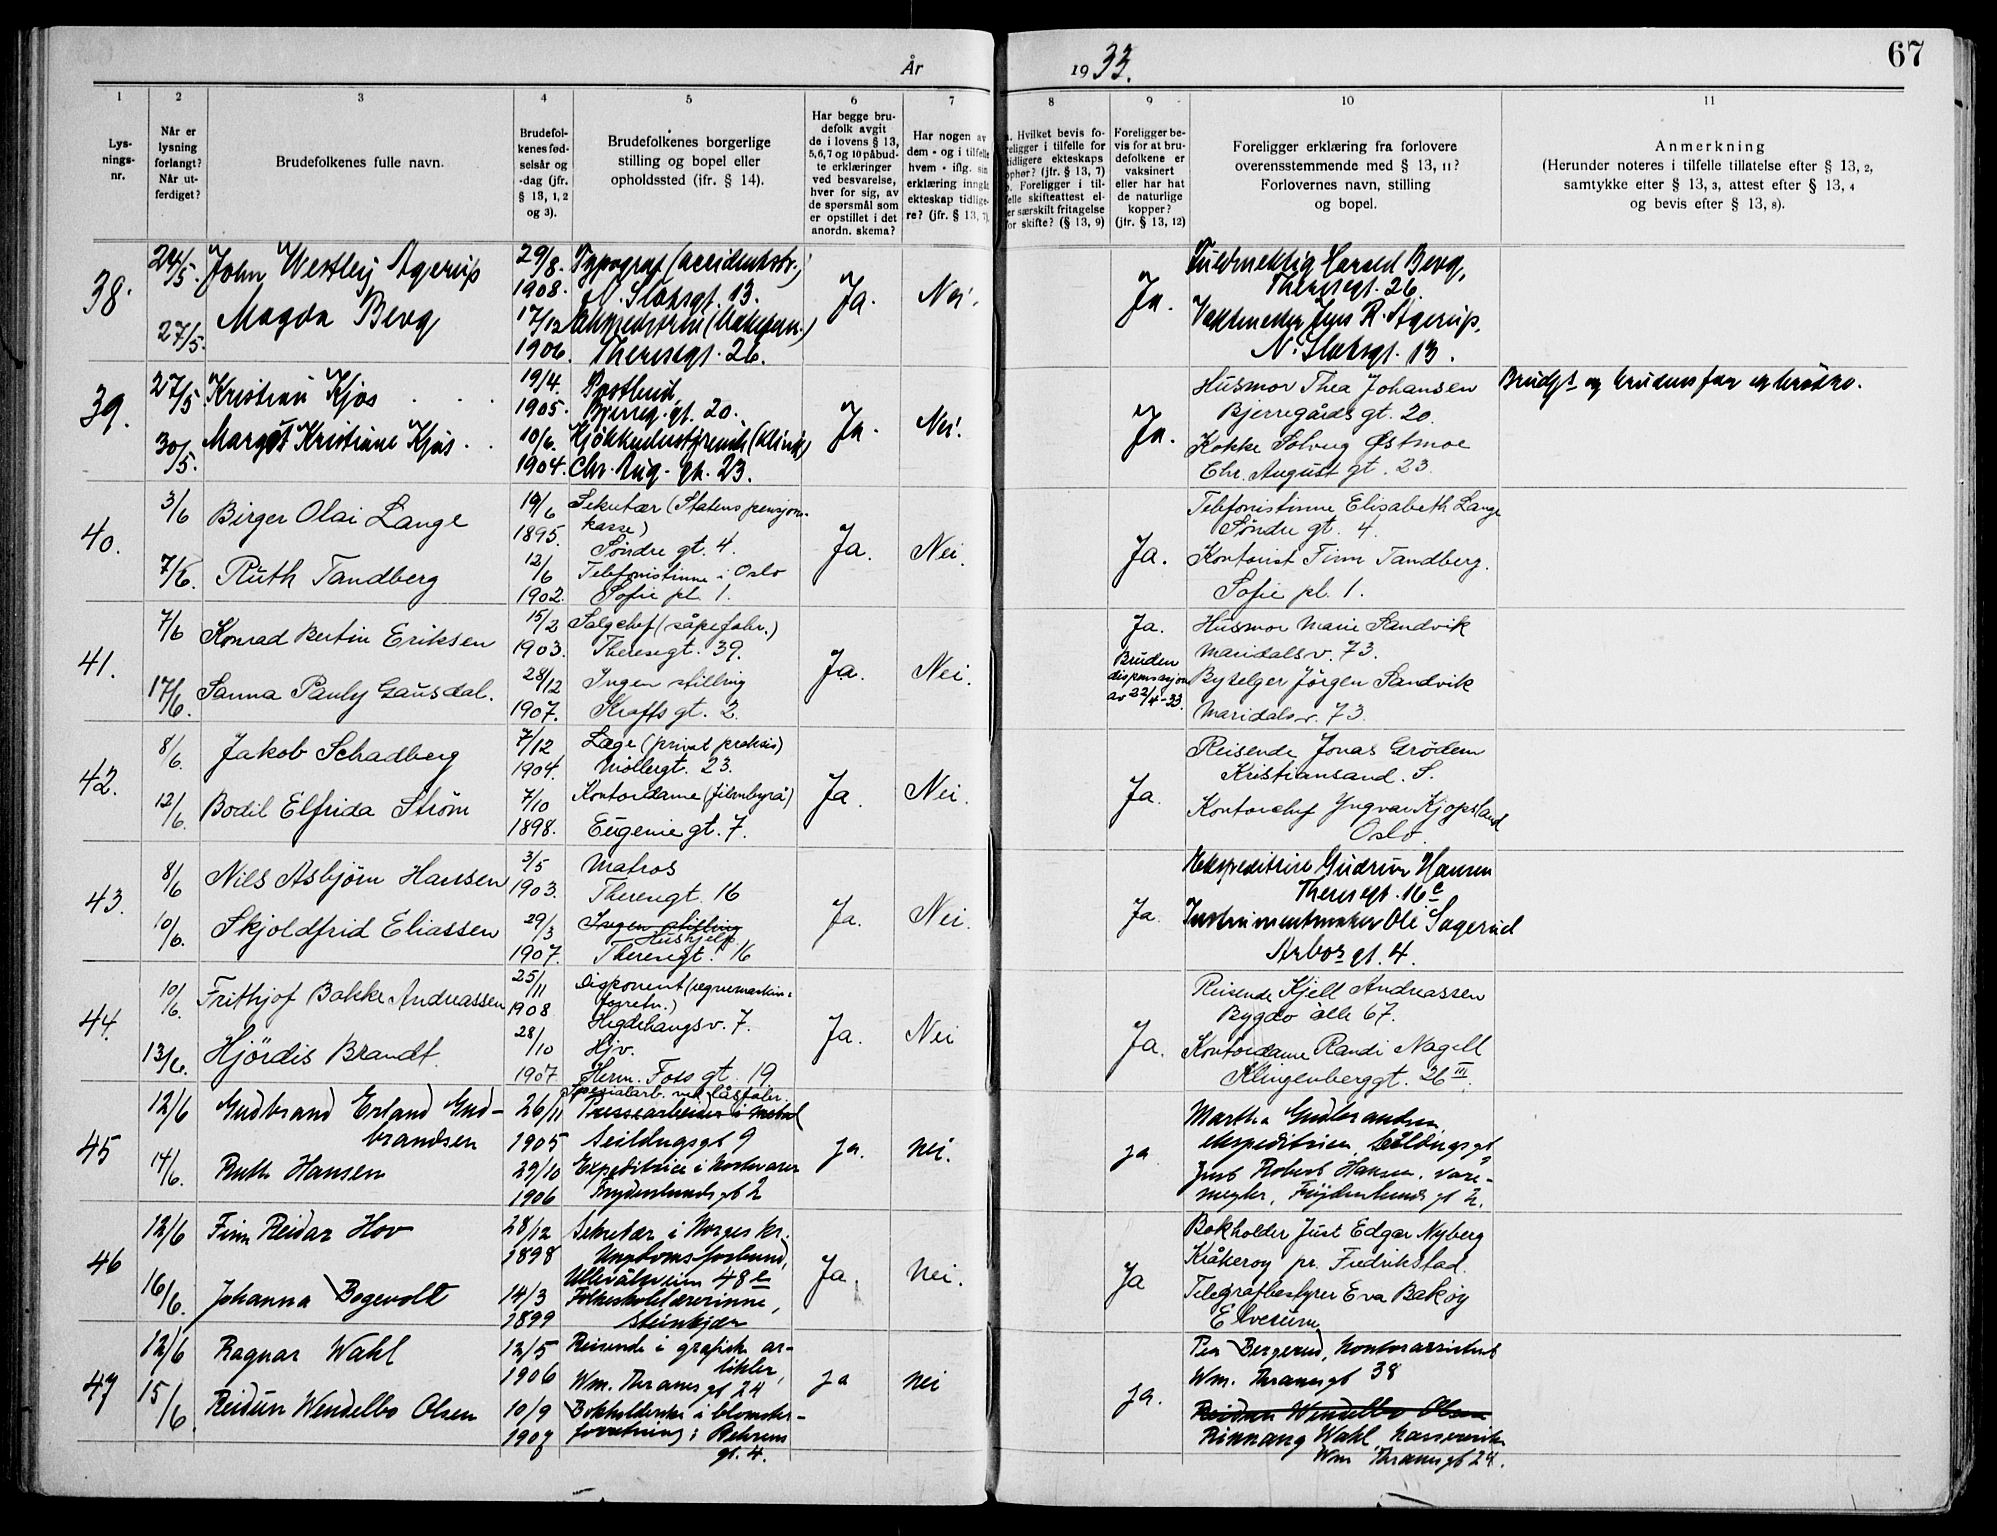 År
19 33.
67
1
2
3
4
5
6
7
8
9
10
11
Lys-
nings-
nr.
Når er
lysning
forlangt?
Når ut-
ferdiget?
Brudefolkenes fulle navn.
Brudefol-
kenes fød-
selsår og
-dag (jfr.
§ 13, 1, 2
og 3).
Brudefolkenes borgerlige
stilling og bopel eller
opholdssted (jfr. § 14).
Har begge bru-
defolk avgit
de i lovens § 13,
5,6,7 og 10 påbud-
te erklæringer
ved besvarelse,
hver for sig, av
de spørsmål som
er opstillet i det
anordn. skema?
Har nogen av
dem - og i tilfelle
hvem - iflg. sin
erklæring inngåt
ekteskap tidlige-
re? (jfr. § 13, 7).
Hvilket bevis fo-
religger i tilfelle for
tidligere ekteskaps
ophør? (jfr. § 13, 7)
Foreligger i til-
felle skifteattest el-
er særskilt fritagelse
for skifte? (§ 13, 9)
Foreligger be-
vis for at bru-
defolkene er
vaksinert
eller har hat
de naturlige
kopper?
(jfr. § 13, 12)
Foreligger erklæring fra forlovere
overensstemmende med § 13, 11?
Forlovernes navn, stilling
og bopel.
Anmerkning
(Herunder noteres i tilfelle tillatelse efter § 13, 2,
samtykke efter § 13, 3, attest efter § 13, 4
og bevis efter § 13, 8).
38.
24/5.
27/5.
John Westley Agerup
Magda Berg
29/8.
1908.
17/12
1906.
Typograf
N. Slotsgt. 13.
Theresegt. 26.
Ja.
Nei.
Ja.
Fuldmektig Harald Berg,
Theresegt. 26.
Vaktmester Jens R. Agerup,
N. Slotsgt. 13.
39.
27/5
30/5.
Kristian Kjøs
Margit Kristiane Kjøs
19/4.
1905.
10/6.
1904.
Postbud,
Bjerreg. gt. 20.
Chr. Aug. gt. 23.
Ja.
Nei.
Ja.
Husmor Thea Johansen
Bjerregårds gt. 20.
Kokke Solveig Østmoe
Chr. August gt. 23.
Brudgs og brudens far er brødre.
40.
3/6
7/6.
Birger Olai Lange
Ruth Tandberg
19/6
1895.
12/6
1902.
Sekretær (Statens pensjons-
kasse)
Søndre gt. 4.
Telefonistinne i Oslo
Sofie pl. 1.
Ja.
Nei.
Ja.
Telefonistinne Elisabeth Lange
Søndre gt. 4.
Kontorist Finn Tandberg.
Sofie pl. 1.
41.
7/6
17/6.
Konrad Bertin Eriksen
Sanna Pauly Gausdal.
15/2
1903.
28/12
1907.
Salgchef (såpefabr.)
Theresegt. 39.
Ingen stilling
Kroffs gt. 2.
Ja.
Nei.
Ja.
Bruden
dispensasjon
av 22/4-33.
Husmor Marie Sandvik
Maridalsv. 73.
Byselger Jörgen Sandvik
Maridalsv. 73.
42.
8/6.
12/6.
Jakob Schadberg
Bodil Elfrida Strøm
7/12
1904.
7/10
1898.
Læge (privat praksis)
Møllergt. 23.
Kontordame (filmbyrå)
Eugenie gt. 7.
Ja.
Nei.
Ja.
Reisende Jonas Grødem
Kristiansand. S.
Kontorchef Yngvar Kjøpsland
Oslo.
43.
8/6
10/6.
Nils Asbjørn Hansen
Skjoldfrid Eliassen
3/5
1903.
29/3
1907.
Matros
Theresegt. 16
Ingen stilling
Hushjelp.
Theresegt. 16
Ja.
Nei.
Ja.
Ekspeditrise Gudrun Hansen
Theresegt. 16 c
Instrumentmaker Ole Sagerud
Arbos gt. 4.
44.
10/6.
13/6.
Frithjof Bakke Andreassen
Hjördis Brandt.
25/11
1908
28/10
1907
Disponent (regnemaskin-
forretn.)
Hegdehaugsv. 7.
Hjv.
Herm. Foss gt. 19
Ja.
Nei
Ja.
Reisende Kjell Andreassen
Bygdø allé 67.
Kontordame Randi Nagell
Klingenberggt. 26 III.
45
12/6
14/6.
Gudbrand Erland Gud-
brandsen
Ruth Hansen
26/11
1905
29/10
1906
Spesialarb. ved låsfabr.
Pressearbeider i metal
Seildugsgt 9
Frydenlunds gt 2
Ja.
nei.
ja
Martha Gudbrandsen
ekspeditrice, Seildugsgt 9
Just Robert Hansen, vare-
megler, Frydenlunds gt 2.
46
12/6
16/6.
Finn Reidar Hov
Johanna Bogevolt
28/12
1898
14/3
1899
Sekretær i Norges kr.
Ungdomsforbund,
Ullevålsveien 48 e
Folkeskolelærerinne,
Steinkjer
Ja.
nei.
Ja
Bokholder Just Edgar Nyberg
Kråkerøy pr. Fredrikstad.
Telegrafbestyrer Eva Bakøy
Elverum
47
12/6
15/6.
Ragnar Wahl
Reidun Wendelbo Olsen
12/5
1906
10/9
1907
Reisende i grafiske ar-
tikler,
Wm. Thranes gt 24
Bokholderske i blomster-
forretning; Behrens
gt. 4.
ja
nei
ja.
Per Bergerud, kontorassistent
Wm. Thranesgt 38
Reidun Wendelbo Olsen
Rinnaug Wahl, kassererske
Wm Thranesgt 24.